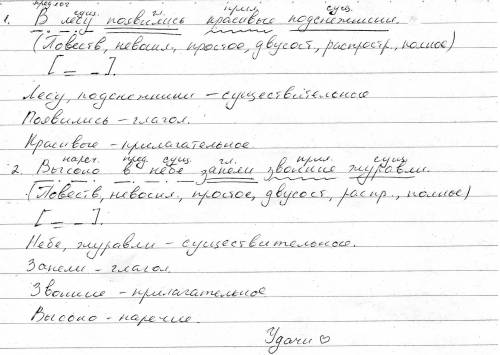 предлог сущ. гл. прил. сущ.
1. В лесу появились красивые подснежники.
(Повеств, невоскл, простое, двусост, распростр, полное)
[ = – ].
Лесу, подснежники – существительное
Появились – глагол.
Красивые – прилагательное.
нареч. пред. сущ. гл. прил. сущ.
2. Высоко в небе запели звонкие журавли.
(Повеств, невоскл, простое, двусост, распр., полное)
[ = – ].
Небе, журавли – существительное.
Запели – глагол.
Звонкие – прилагательное
Высоко – наречие.
Удачи♡